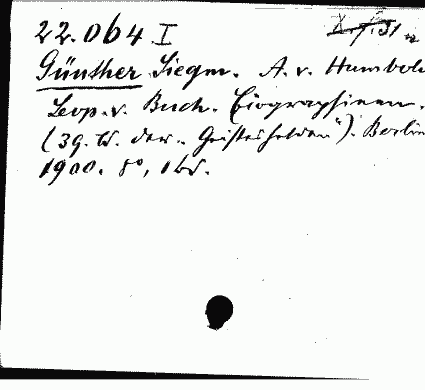 22.064 I
Günther Siegm. A. v. Humbol
Leop. v. Buch. Biographieen.
(39. Bd. der „Geisteshelden"). Berlin
1900. 8°, 1 Bd.